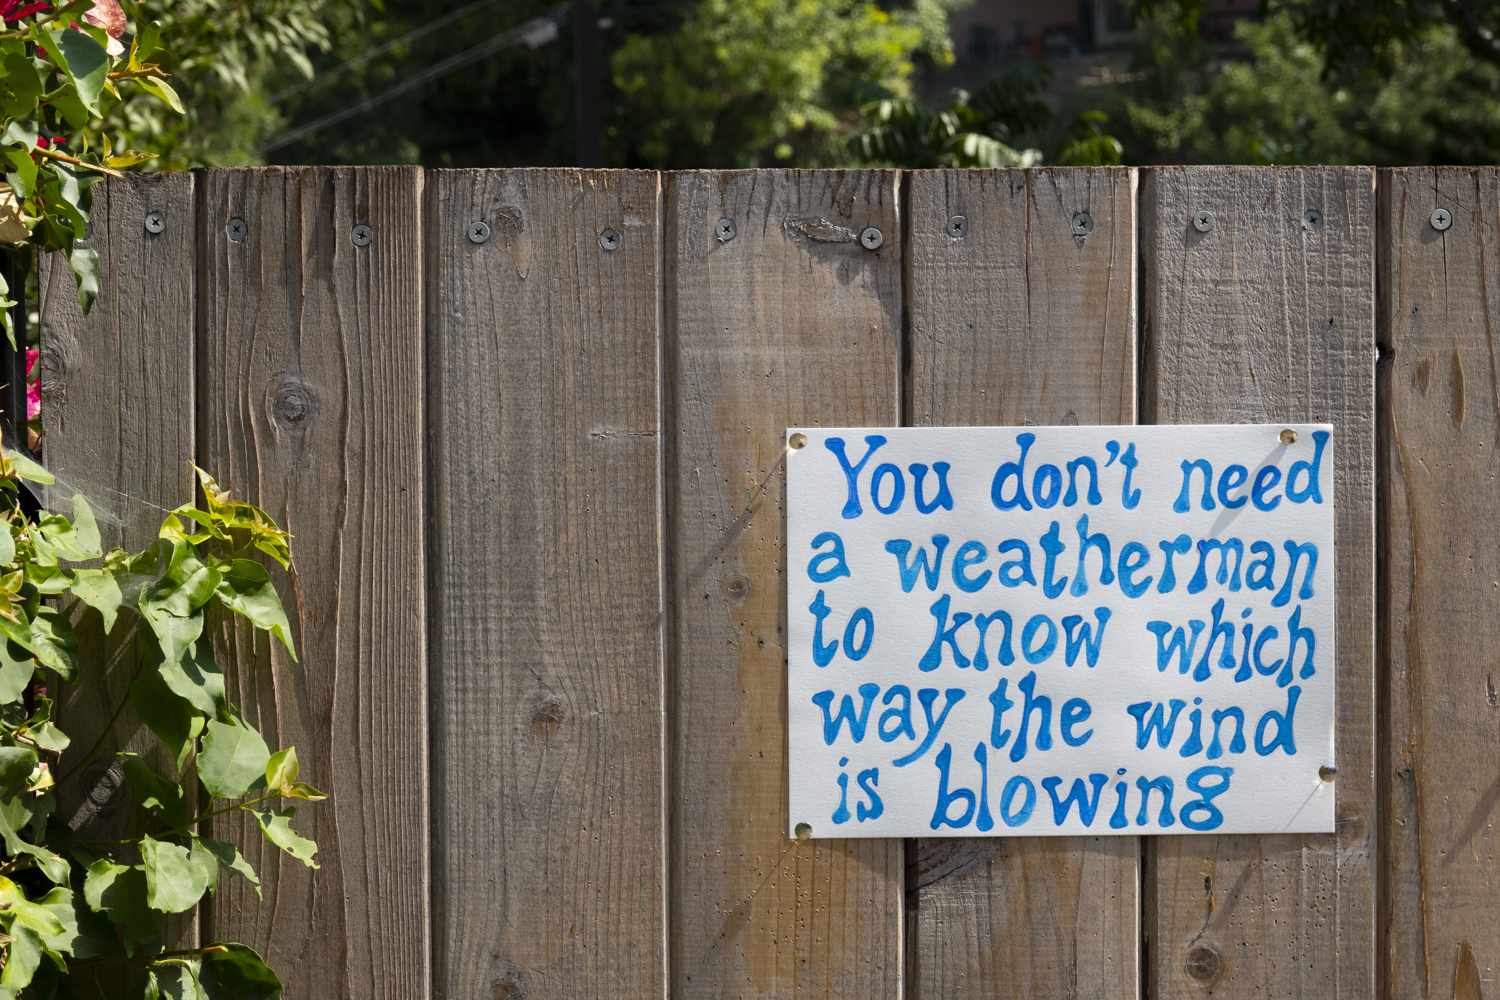 You don't need
a weatherman
to know which
way the wind
is blowing